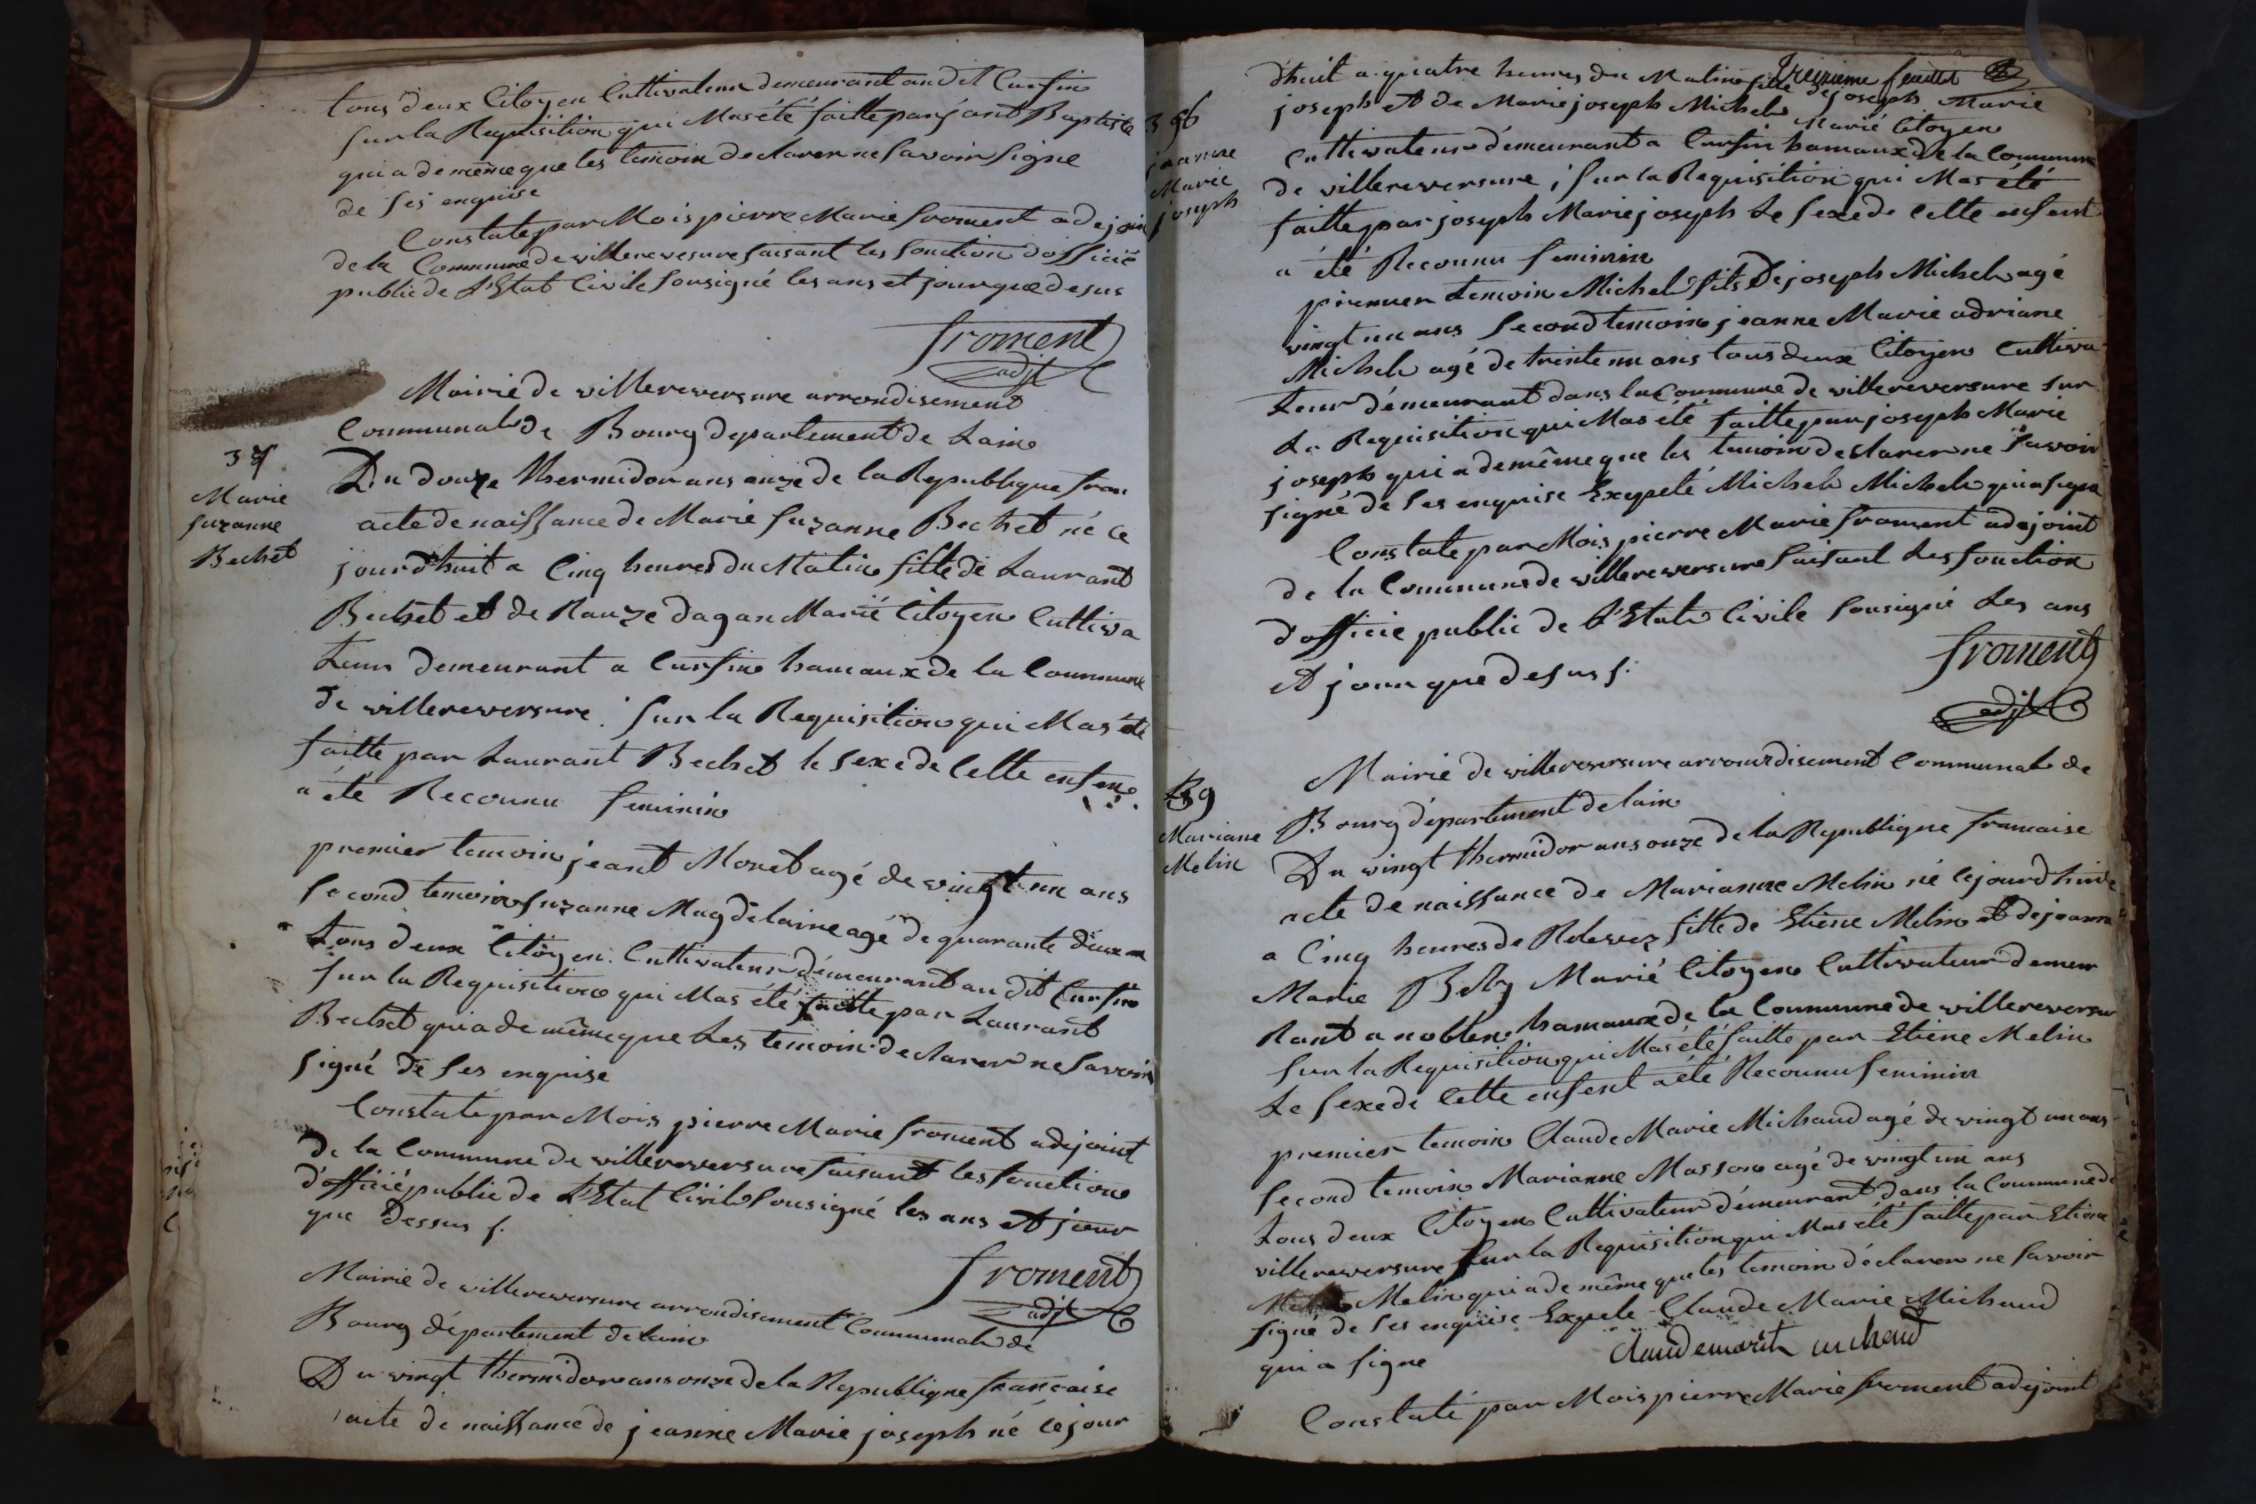 tous deux Citoyen Cultivateur demeurant au dit Cursin
sur la Requisition qui Mas été faitte par jeant Baptiste
qui a de même que les temoin declarer ne Savoir Signe
de ses enquise
Constate par Mois pierre Marie froment adejoin
de la Commune de villereversure faisant les fonction d'officié
public de L'Etat Civile Sousigné les ans et jour que desus
froment
adjt
Mairie de villereversure arrondisement
Communal de Bourg departement de Lain
37
Marie
suzanne
Bechet
Du douze thermidor ans onze de la Republique fran
acte de naissance de Marie suzanne Bechet né ce
jourd'huit a Cinq heures du Matin fille de Laurant
Bechet et de Rauze dagan Marié Citoyen Cultiva
teur demeurant a Cursin hamaux de la Commune
de villereversure. Sur la Requisition qui Mas été
faitte par Laurant Bechet le sexe de Cette enfen
a été Reconnu feminin
premier temoin jeant Monet agé de vingt un ans
second temoin suzanne Magdelaine agé de quarante deux
tous deux Citoyen Cultivateur demeurant au dit Cursin
sur la Requisition qui Mas été faitte par Laurant
Bechet qui a de même que Les temoin declarer ne Savoir
signé de ses enquise
Constaté par Mois pierre Marie froment adejoint
de la Commune de villereversure faisant les fonction
d'officié public de L'Etat Civile Sousigné les ans et jour
que dessus s.
froment
adjt
Mairie de villereversure arrondisement Communal de
Bourg département de lain
Du vingt thermidor ans onze de la Republique francaise
acte de naissance de jeanne Marie joseph né ce jour
treizieme feuillet
d'huit a quatre heures du Matin fille de joseph Marie
jeanne
Marie
joseph
joseph et de Marie joseph Michel Marié Citoyen
Cultivateur démeurant a Cursin hamaux de la Commune
de villereversure; sur la Requisition qui Mas été
faitte par joseph Marie joseph Le sexe de Cette enfent
a été Reconnu feminin
premier temoin Michel fils De joseph Michel agé
vingt un ans second temoin jeanne Marie adriane
Michel agé de trinte un ans tous deux Citoyen Cultiva
teur démeurant dans la Commune de villereversure sur
La Requisition qui Mas été faitte par joseph Marie
joseph qui a de même que les temoin declarer ne Savoir
signé de ses enquise Exepeté Michel Michel qui a signe
Constate par Mois pierre Marie froment adejoint
de la Commune de villereversure faisant Les fonction
d'officie public de L'Etat Civile Sousigné Les ans
et jour que desus s.
froment
adjt
Mairie de villereversure arrondisement Communal de
Bourg département de lain
39
Mariane
Melin
Du vingt thermidor ans onze de la Republique francaise
acte de naissance de Marianne Melin né Cejourdhuit
a Cinq heures de Relevez fille de Etiene Melin et de jeanne
Marie Bolly Marié Citoyen Cultivateur demeu
Rant a noblen hamaux de la Commune de villereversur
sur la Requisition qui Mas été faitte par Etiene Melin
Le sexe de Cette enfent a été Reconnu feminin
premier temoin Claude Marie Michaud agé de vingt un ans
second temoin Marianne Masson agé de vingt un ans
tous deux Citoyen Cultivateur démeurant dans la Commune de
villereversure sur la Requisition qui Mas été faitte par Etiene
Melin qui a de même que les temoin déclarer ne Savoir
signé de ses enquise Expele Claude Marie Michaud
qui a signe
Constaté par Mois pierre Marie froment adejoint